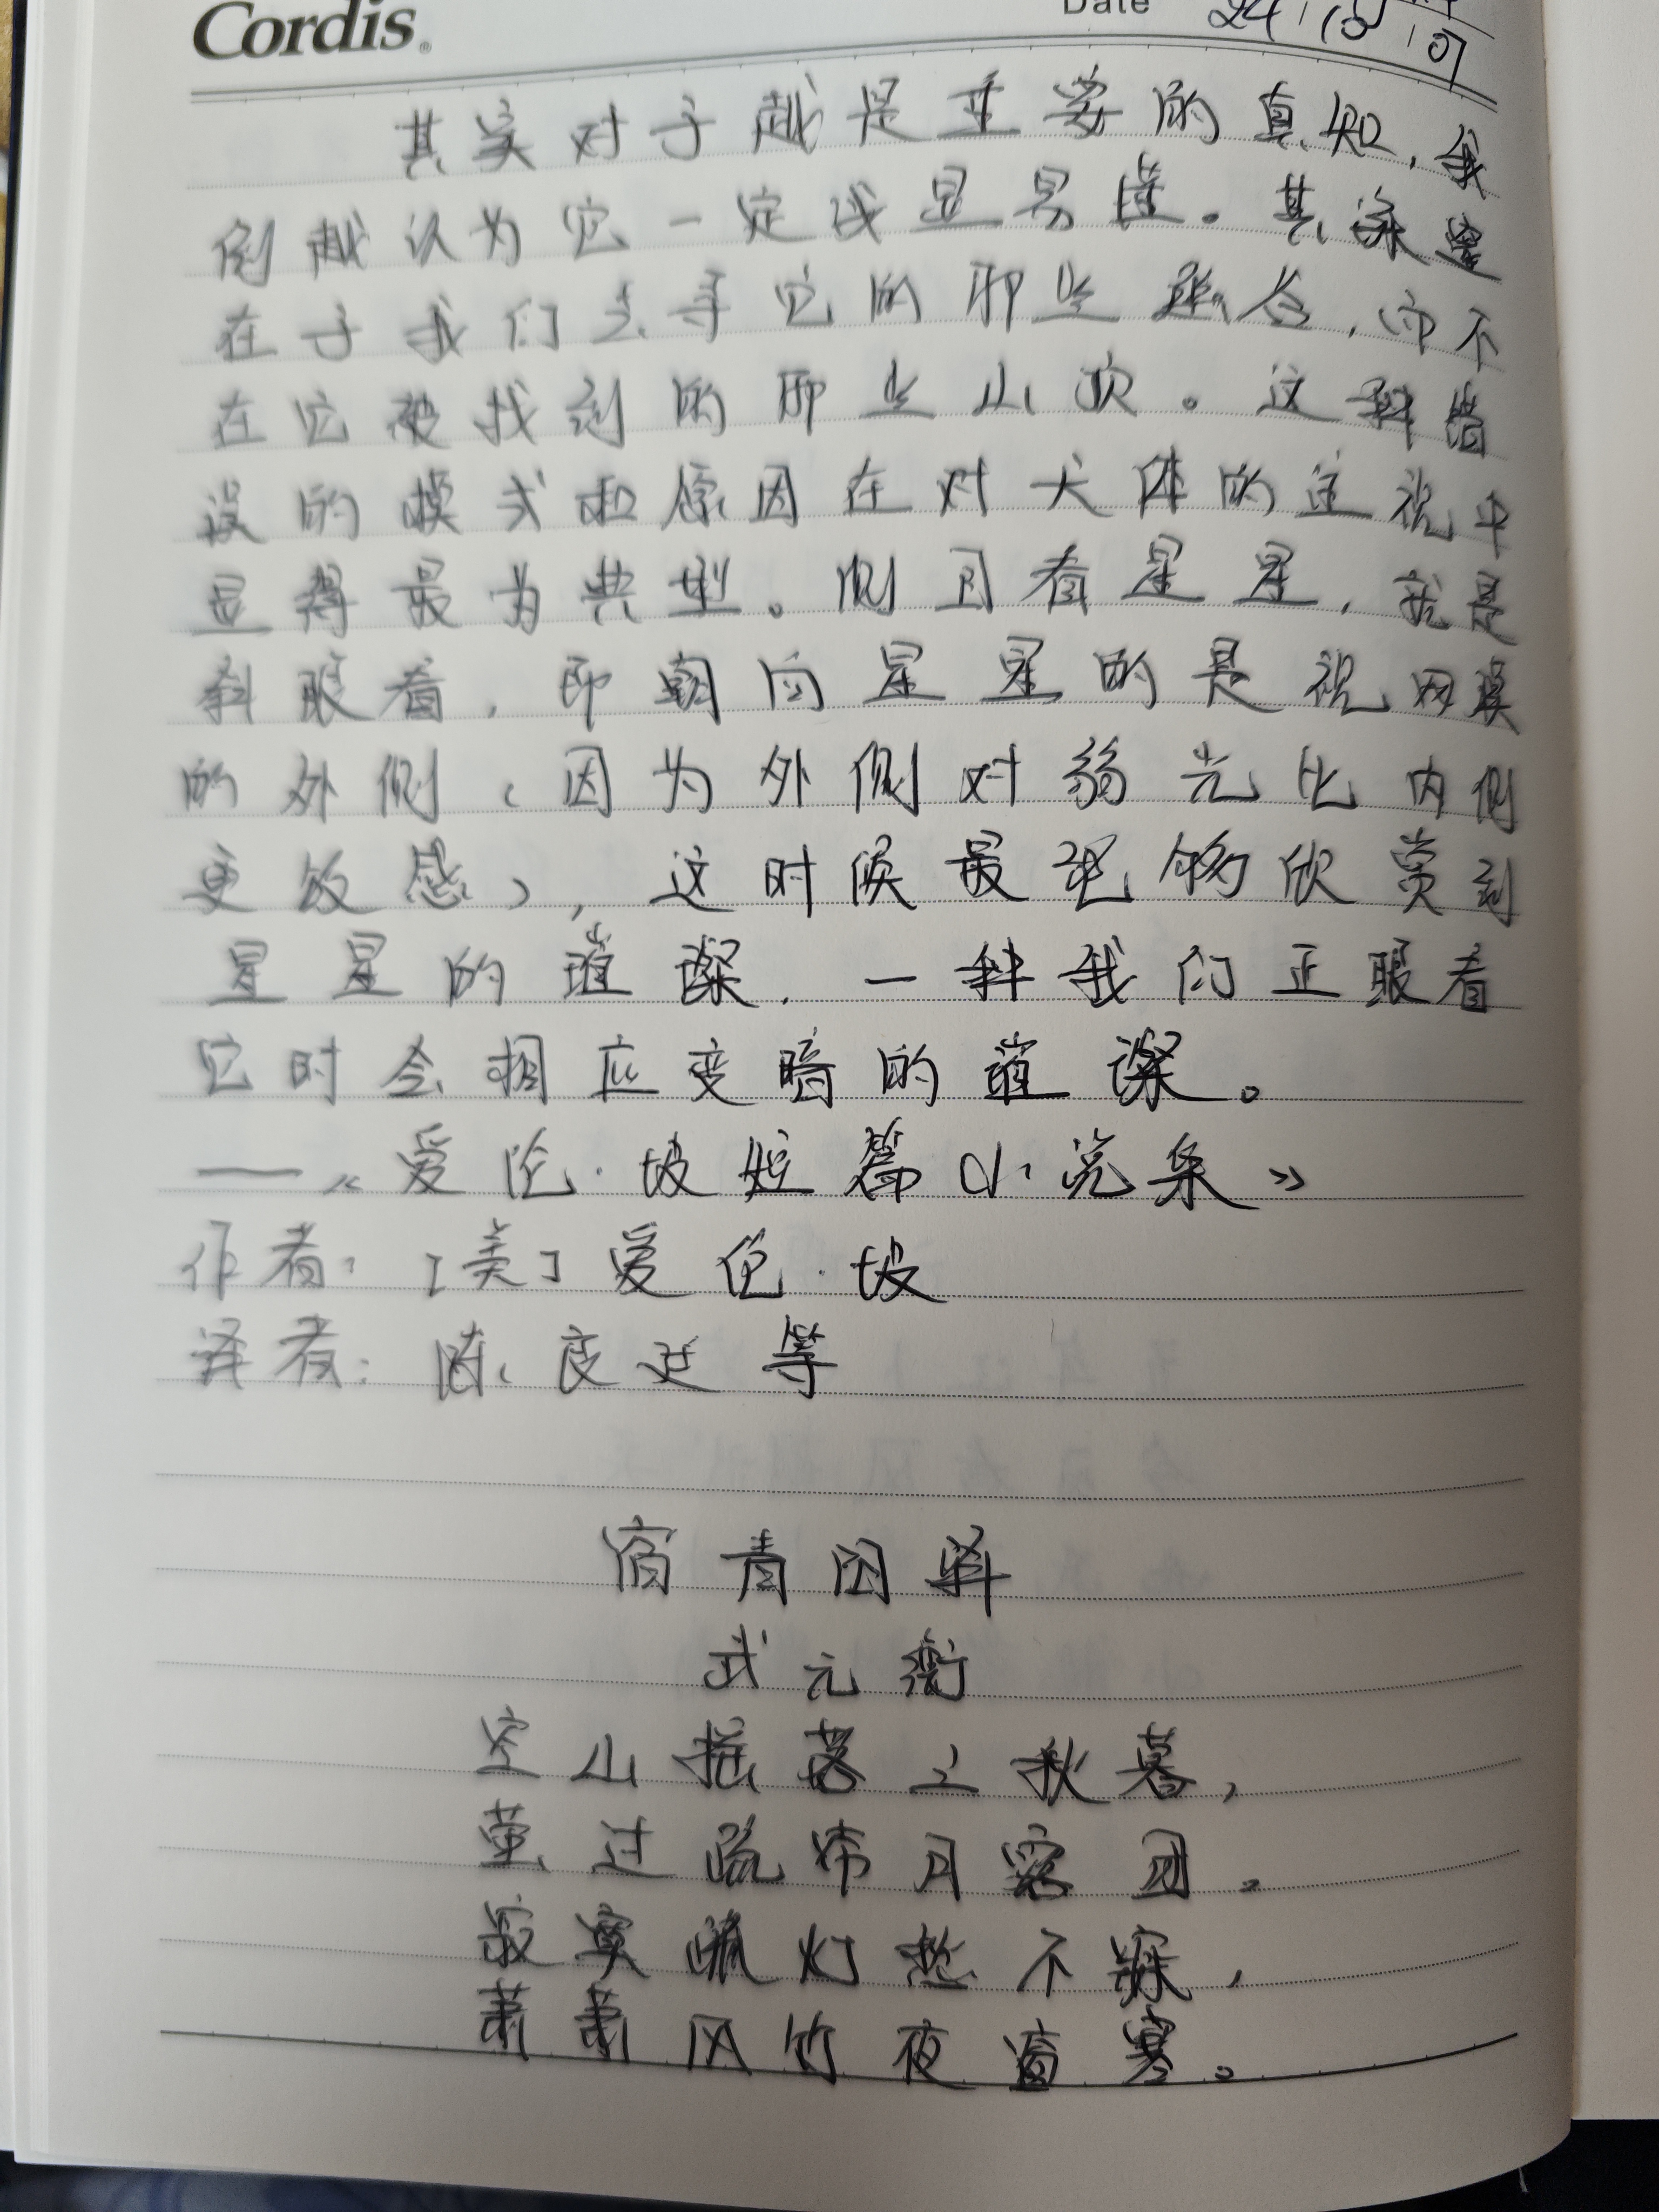 Cordis®
Date 24 10 07
其实对于越是重要的真知，我
倒越认为它一定浅显易懂。其深邃
在于我们去寻它的那些峡谷，而不
在它被找到的那些山顶。这种错
误的模式和原因在对天体的注视中
显得最为典型。侧目看星星，就是
斜眼看，即朝向星星的是视网膜
的外侧（因为外侧对弱光比内侧
更敏感），这时候最能够欣赏到
星星的璀璨，一种我们正眼看
它时会相应变暗的璀璨。
——《爱伦·坡短篇小说集》
作者：[美]爱伦·坡
译者：陈良廷等
宿青阳驿
武元衡
空山摇落三秋暮，
萤过疏帘月露团。
寂寞孤灯愁不寐，
萧萧风竹夜窗寒。